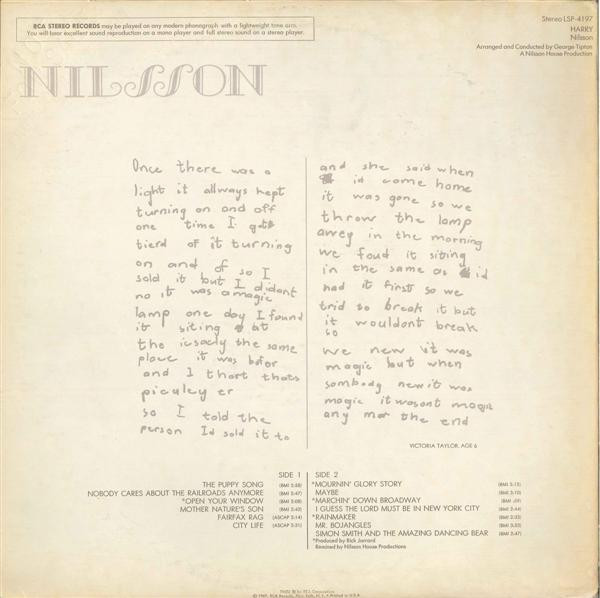 RCA STEREO RECORDS may be played on any modern phonograph with a lightweight tone arm.
You will hear excellent sound reproduction on a mono player and full stereo sound on a stereo player.
Stereo LSP-4197
HARRY
Nilsson
Arranged and Conducted by George Tipton
A Nilsson House Production
NILSSON
Once there was a
light it allways kept
turning on and off
one time I got
tierd of it turning
on and of so I
sold it but I didant
no it was a magic
lamp one day I found
it siting at
the icsacly the same
place it was befor
and I thort thats
piculey er
so I told the
person Id sold it to
and she said when
id come home
it was gone so we
throw the lamp
awey in the morning
we foud it siting
in the same as id
had it first so we
trid so break it but
it wouldont break
so
we new it was
magic but when
sombody new it was
magic it wasont magic
any mor the end
VICTORIA TAYLOR, AGE 6
SIDE 1
THE PUPPY SONG (BMI 2:38)
NOBODY CARES ABOUT THE RAILROADS ANYMORE (BMI 2:47)
*OPEN YOUR WINDOW (BMI 2:08)
MOTHER NATURE'S SON (BMI 2:42)
FAIRFAX RAG (ASCAP 2:14)
CITY LIFE (ASCAP 2:31)
SIDE 2
*MOURNIN' GLORY STORY (BMI 2:15)
MAYBE (BMI 3:10)
*MARCHIN' DOWN BROADWAY (BMI :59)
I GUESS THE LORD MUST BE IN NEW YORK CITY (BMI 2:44)
*RAINMAKER (BMI 2:32)
MR. BOJANGLES (BMI 3:53)
SIMON SMITH AND THE AMAZING DANCING BEAR (BMI 2:47)
*Produced by Rick Jarrard
Remixed by Nilsson House Productions
TMK(s) ® by RCA Corporation
© 1969, RCA Records, New York, N.Y. • Printed in U.S.A.